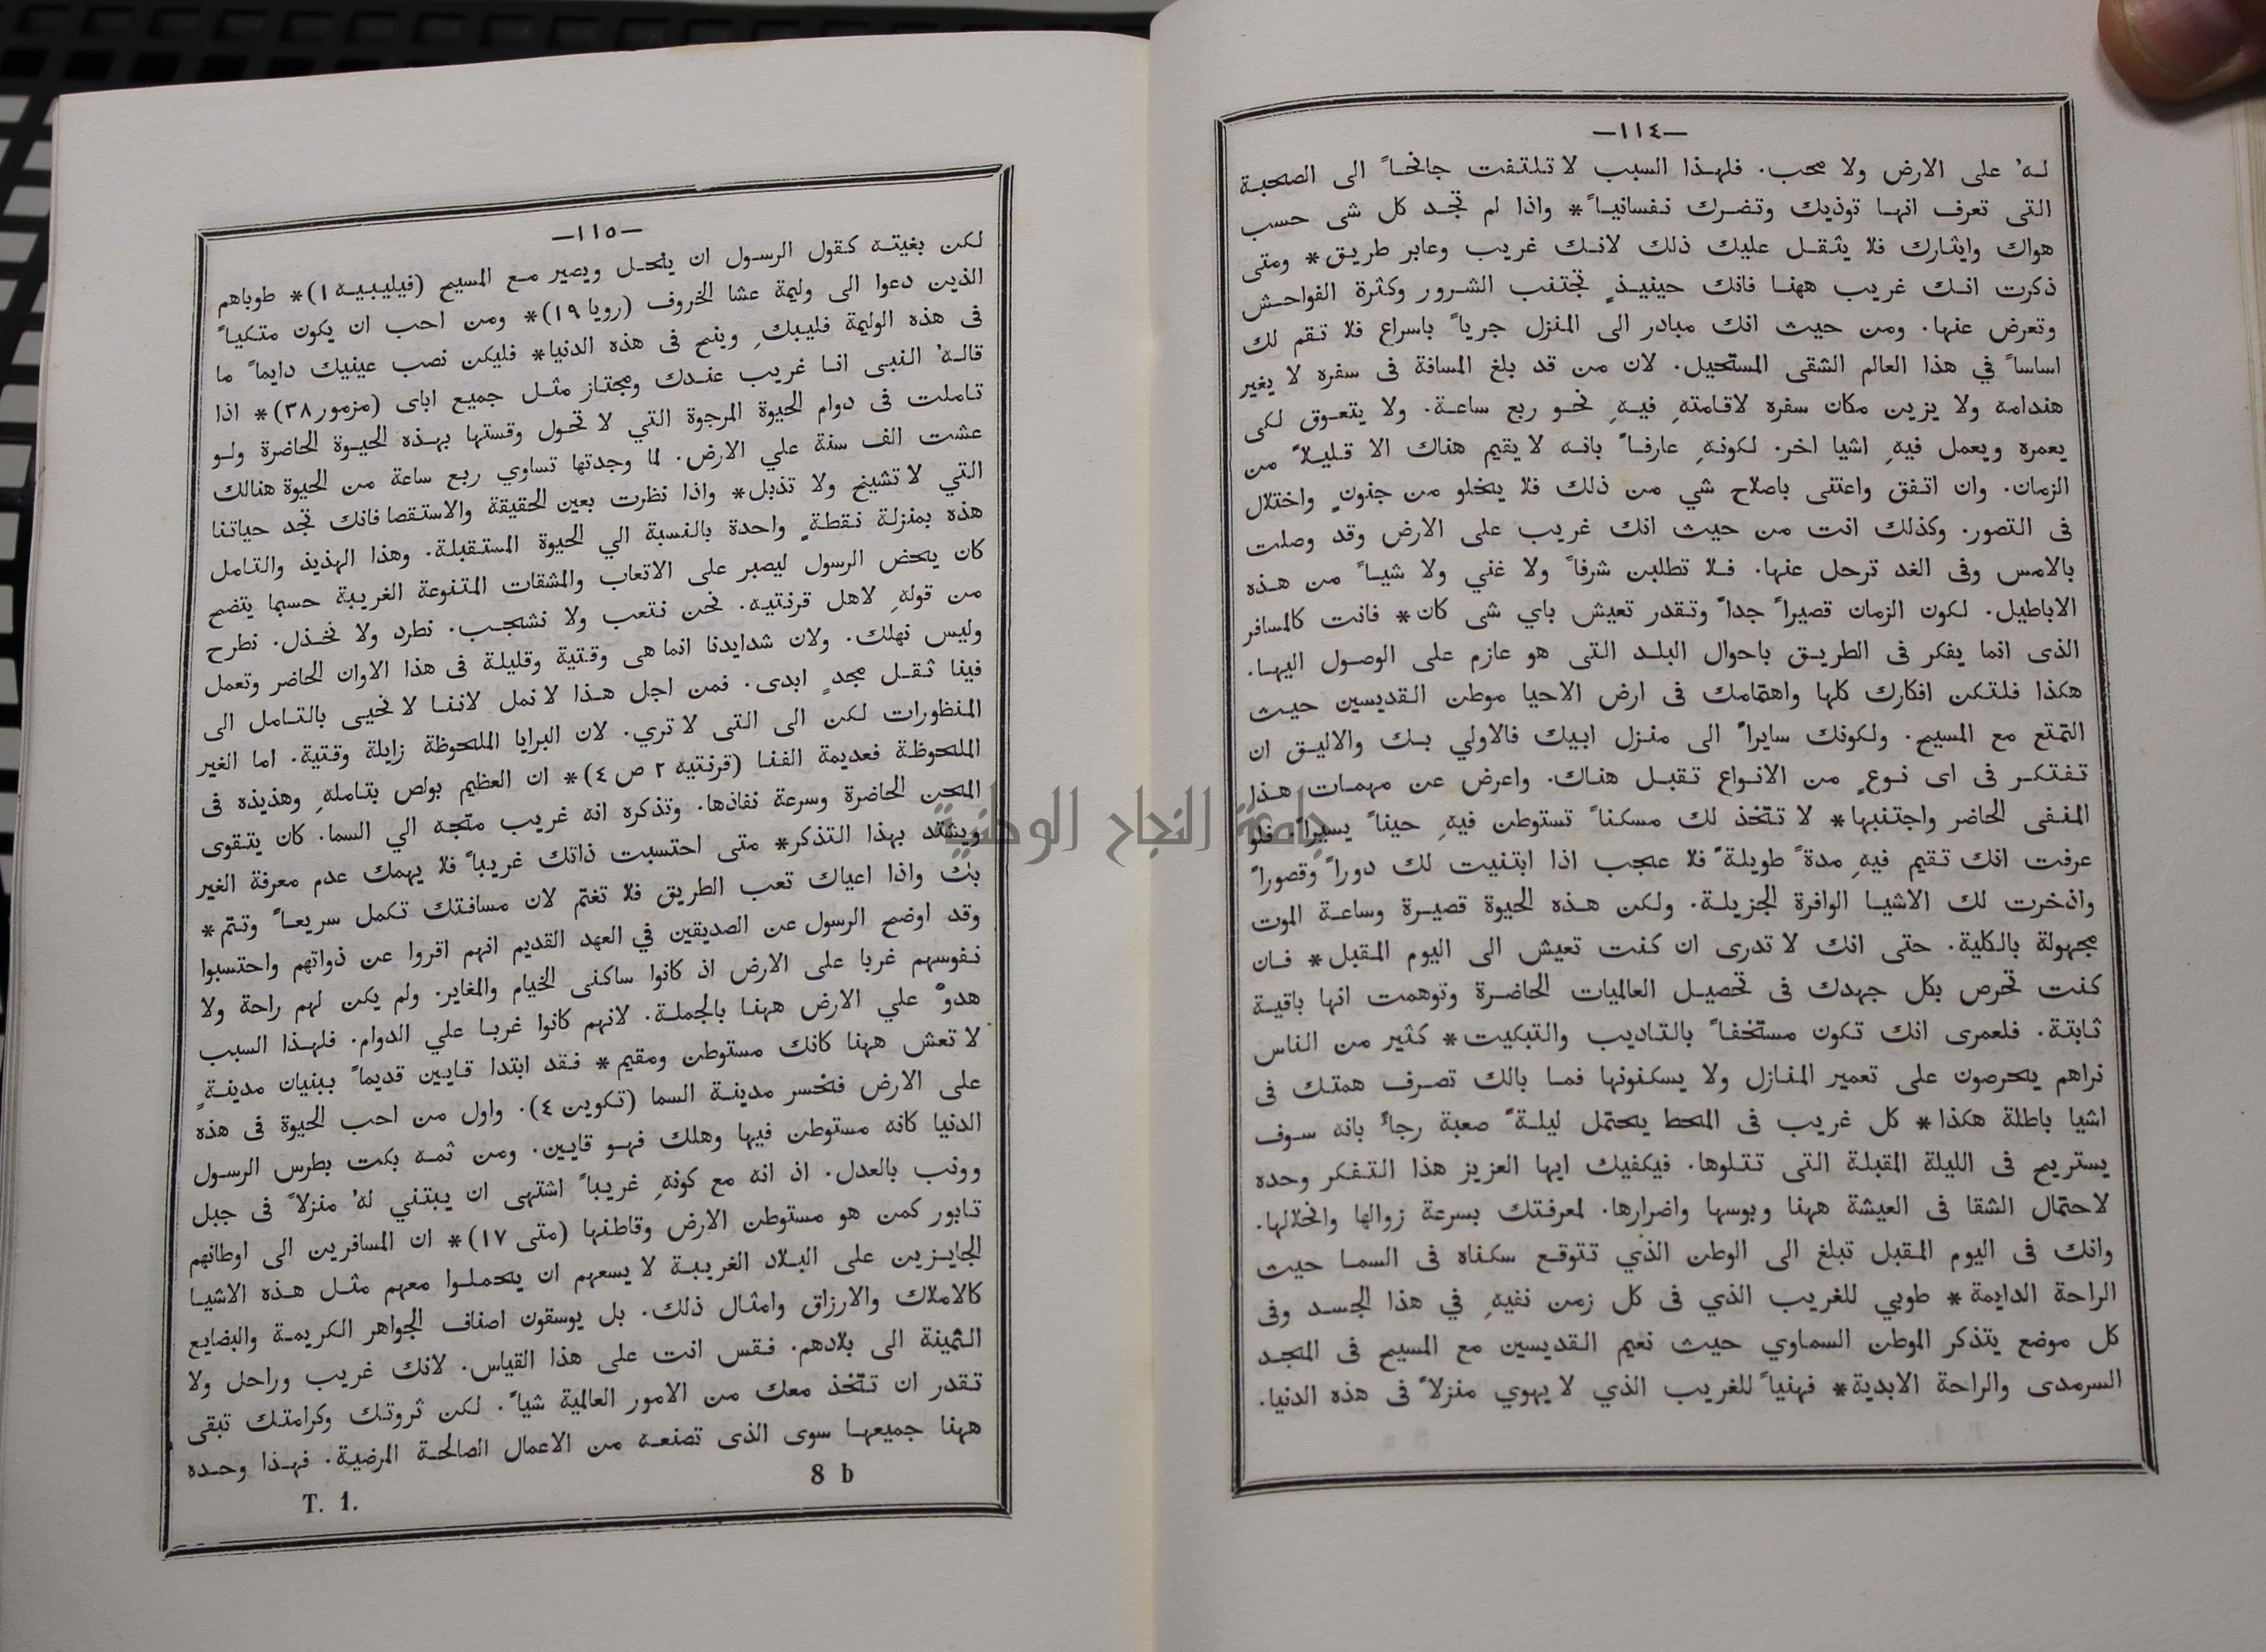 —١١٤—
لـهُ على الارض ولا محب. فلهـذا السبب لا تلتفت جانحـاً الى الصحبة
التى تعرف انهـا توذيك وتضـرك نفسانيـاً* واذا لم تجـد كل شى حسب
هواك وايثارك فلا يثـقـل عليك ذلك لانـك غريب وعابر طريـق* ومتى
ذكرت انـك غريب ههنـا فانك حينيـذٍ تجتنب الشـرور وكثرة الفواحـش
وتعرض عنها. ومن حيث انك مبادر الى المنزل جرياً باسراع فلا تـقم لك
اساساً في هذا العالم الشقى المستحيل. لان من قد بلغ المسافة فى سفره لا يغير
هندامه ولا يزين مكان سفره لاقـامتهِ فيـهِ نحـو ربع ساعـة. ولا يتعـوق لكى
يعمره ويعمل فيهِ اشيا اخر. لكونهِ عارفـاً بانـه لا يقيم هناك الا قـليـلاً من
الزمان. وان اتـفق واعتنى باصلاح شي من ذلك فلا يخلو من جنونٍ واختلال
فى التصور. وكذلك انت من حيث انك غريب على الارض وقد وصلت
بالامس وفى الغد ترحل عنها. فـلا تطلبن شرفاً ولا غني ولا شيـاً من هـذه
الاباطيل. لكون الزمان قصيراً جداً وتـقدر تعيش باي شى كان* فانت كالمسافر
الذى انما يفكر فى الطريـق باحوال البلـد التى هو عازم على الوصـول اليهـا.
هكذا فلتـكن افكارك كلها واهتمامك فى ارض الاحيا موطن القديسين حيـث
التمتع مع المسيح. ولكونك سايراً الى منـزل ابيك فالاولي بـك والاليـق ان
تـفتكـر فى اى نـوعٍ من الانـواع تـقبـل هنـاك. واعرض عن مهمـات هـذا
المنـفى الحاضر واجتنبها* لا تـتخذ لك مسكنـاً تستوطن فيهِ حينـاً يسيراً. فلو
عرفت انك تـقيم فيهِ مدةً طويلـةً فلا عجب اذا ابتنيت لك دوراً وقصوراً
واذخرت لك الاشيـا الوافرة الجزيلـة. ولكن هـذه الحيوة قصيـرة وساعـة الموت
مجهولة بالكلية. حتى انك لا تدرى ان كنت تعيش الى اليوم المـقبل* فـان
كنت تحرص بكل جهدك فى تحصيـل العالميات الحاضـرة وتوهمت انها باقيـة
ثـابتـة. فلعمرى انك تـكون مستخفـاً بالتـاديب والتبكيت* كثير من الناس
نراهم يحرصون على تعمير المنازل ولا يسكنونها فمـا بالك تصـرف همتـك فى
اشيا باطلة هكذا* كل غريب فى المحط يحتمل ليلـةً صعبة رجاً بانه سـوف
يستريح فى الليلة المقبلة التى تـتـلوها. فيكفيك ايها العزيز هذا التـفكر وحده
لاحتمال الشقا فى العيشة ههنا وبوسها واضرارها. لمعرفتـك بسرعة زوالها وانحلالها.
وانك فى اليوم المـقبل تبلغ الى الوطن الذي تـتوقـع سكناه فى السمـا حيث
الراحة الدايمة* طوبي للغريب الذي فى كل زمن نفيهِ في هذا الجسـد وفى
كل موضع يتذكر الموطن السماوي حيث نعيم القديسين مع المسيح فى المجـد
السرمدى والراحة الابدية* فهنياً للغريب الذي لا يهوي منزلاً فى هذه الدنيا.
—١١٥—
لكن بغيتـه كـقول الرسـول ان ينحـل ويصير مـع المسيح (فيليبيـه ١)* طوباهم
الذين دعوا الى وليمة عشا الخروف (رويا ١٩)* ومن احب ان يكون متكيـاً
فى هذه الوليمة فليبكِ وينح فى هذه الدنيا* فليكن نصب عينيك دايماً ما
قالـهُ النبى انـا غريب عنـدك ومجتـاز مثـل جميع اباى (مزمور ٣٨)* اذا
تـاملت فى دوام الحيوة المرجوة التي لا تحـول وقستها بهـذه الحيـوة الحاضرة ولـو
عشت الف سنة علي الارض. لما وجدتها تساوي ربع ساعة من الحيوة هنالك
التي لا تشيخ ولا تذبل* واذا نظرت بعين الحقيقة والاستـقصا فانك تجد حياتنا
هذه بمنزلة نقطـةٍ واحدة بالنسبة الي الحيوة المستـقبلة. وهذا الهذيذ والتـامل
كان يحض الرسول ليصبر على الاتعاب والمشقات المتنوعة الغريبة حسبما يتضح
من قولهِ لاهل قرنتيه. نحن نتعب ولا نشجـب. نطرد ولا نخـذل. نطرح
وليس نهلك. ولان شدايدنا انما هى وقـتية وقليلة فى هذا الاوان الحاضر وتعمل
فينا ثـقـل مجدٍ ابدى. فمن اجل هـذا لا نمل لاننـا لا نحيـى بالتـامل الى
المنظورات لكن الى التى لا تري. لان البرايا الملحوظة زايلة وقتية. اما الغير
الملحوظـة فعديمة الفنـا (قرنتيه ٢ ص ٤)* ان العظيم بولص بتـاملهِ وهذيذه فى
المحن الحاضرة وسرعة نفاذها. وتذكره انه غريب متجه الي السما. كان يتـقوى
ويشتد بهذا التذكر* متى احتسبت ذاتك غريباً فلا يهمك عدم معرفة الغير
بك واذا اعياك تعب الطريق فلا تغتم لان مسافتك تكمل سريعـاً وتتم*
وقد اوضح الرسول عن الصديقين في العهد القديم انهم اقروا عن ذواتهم واحتسبوا
نفوسهم غربا على الارض اذ كانوا ساكنى الخيام والمغاير. ولم يكن لهم راحة ولا
هدوٌ علي الارض ههنـا بالجملـة. لانهم كانوا غربـا علي الدوام. فلهـذا السبب
لا تعش ههنا كانك مستوطن ومقيم* فـقد ابتدا قـايـين قديماً ببنيان مدينـةٍ
على الارض فخسر مدينـة السما (تكوين ٤). واول من احب الحيوة فى هذه
الدنيا كانه مستوطن فيها وهلك فهـو قايـين. ومن ثمـه بكت بطرس الرسـول
وونب بالعدل. اذ انه مع كونهِ غريبـاً اشتهى ان يبتني لهُ منزلاً فى جبل
تـابور كمن هو مستوطن الارض وقاطنها (متى ١٧)* ان المسافرين الى اوطانهم
الجايـزين على البـلاد الغريبـة لا يسعهم ان يحملـوا معهم مثـل هـذه الاشيـا
كالاملاك والارزاق وامثـال ذلك. بل يوسقون اصناف الجواهر الكريمـة والبضايع
الثمينة الى بلادهم. فـقس انت على هذا القياس. لانك غريب وراحل ولا
تـقدر ان تـتخذ معك من الامور العالمية شياً. لكن ثروتـك وكرامتـك تبقى
ههنا جميعهـا سوى الذى تصنعـه من الاعمال الصالحـة المرضية. فهـذا وحـده
8 b
T. 1.
جامعة النجاح الوطنية